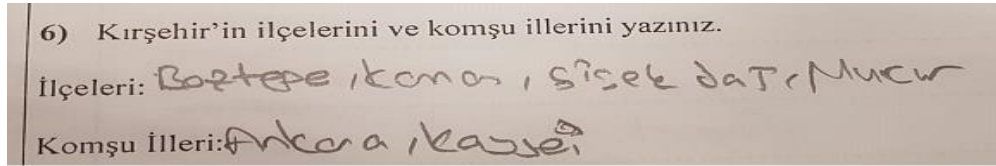 6) Kırşehir'in ilçelerini ve komşu illerini yazınız.
İlçeleri: Boztepe, kaman, siçek daTı, Mucur
Komşu İlleri: Ankara, kayseri